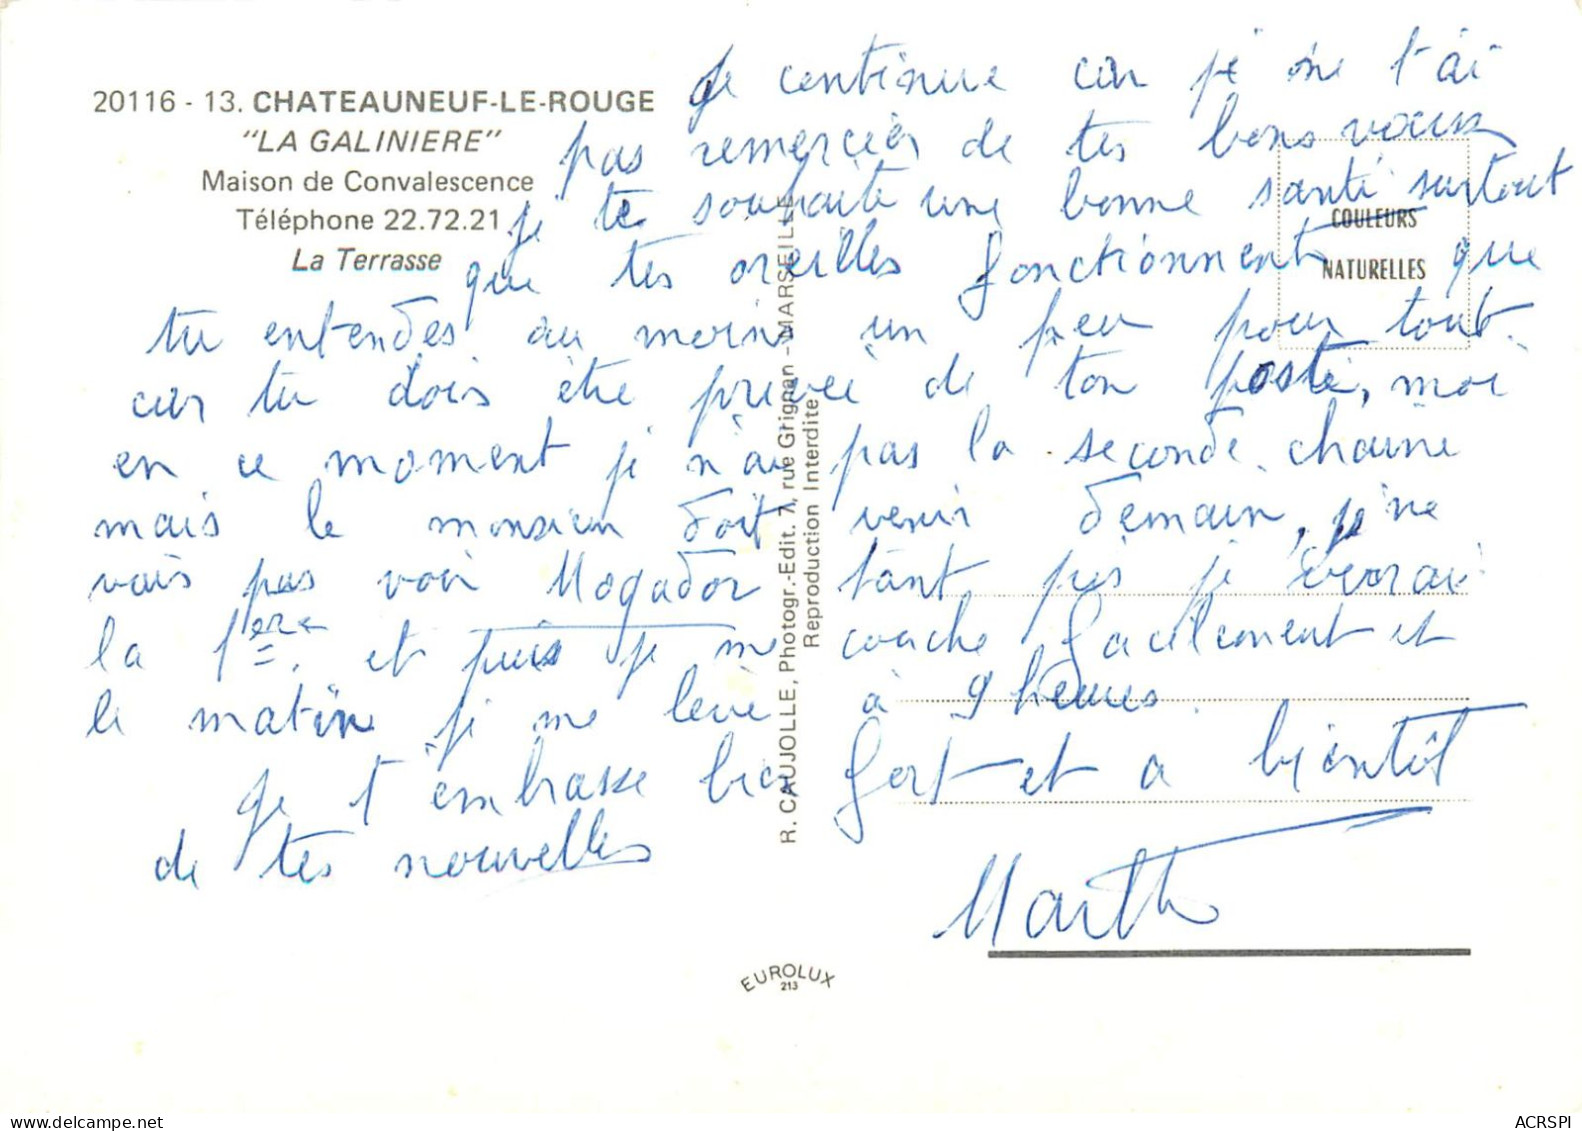 20116 - 13. CHATEAUNEUF-LE-ROUGE
"LA GALINIERE"
Maison de Convalescence
Téléphone 22.72.21
La Terrasse
COULEURS
NATURELLES
Je continue car je ne t'ai
pas remerciér de tes bons voeux
je te souhaite une bonne santé surtout
que tes oreilles fonctionnent que
tu entendes au moins un peu pour tout.
car tu dois être privée de ton poste, moi
en ce moment je n'ai pas la seconde chaine
mais le monsieur doit venir demain, je ne
vais pas voir Mogador tant pis je
la 1ere. et puis je me couche facilement et
le matin je me leve à 9 heures.
Je t'embrasse bien fort et a bientôt
de tes nouvelles
Marthe
R. CAUJOLLE, Photogr.-Edit. 7, rue Grignan - MARSEILLE
Reproduction Interdite
EUROLUX
213
ACRSPI